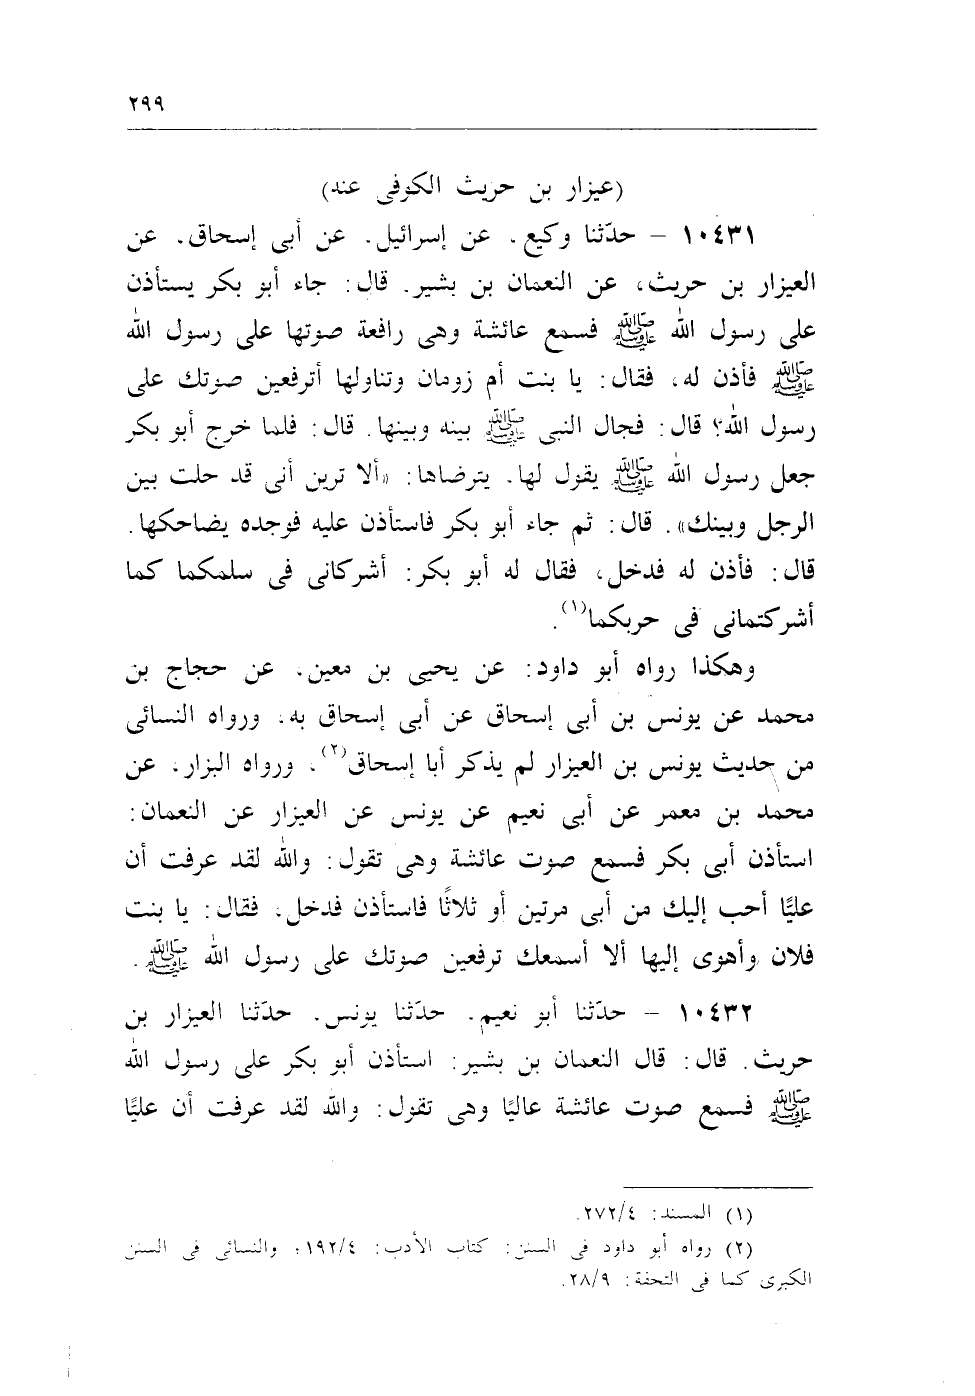 ٢٩٩
(عيزار بن حريث الكوفى عنه)
١٠٤٣١ – حدّثنا وكيع. عن إسرائيل. عن أبى إسحاق. عن
العيزار بن حريث، عن النعمان بن بشير. قال: جاء أبو بكر يستأذن
على رسول الله ﷺ فسمع عائشة وهى رافعة صوتها على رسول الله
ﷺ فأذن له، فقال: يا بنت أم زومان وتناولها أترفعين صوتك على
رسول الله؟ قال: فجال النبى ﷺ بينه وبينها. قال: فلما خرج أبو بكر
جعل رسول الله ﷺ يقول لها. يترضاها: «ألا ترين أنى قد حلت بين
الرجل وبينك». قال: ثم جاء أبو بكر فاستأذن عليه فوجده يضاحكها.
قال: فأذن له فدخل، فقال له أبو بكر: أشركانى فى سلمكما كما
أشركتمانى فى حربكما(١).
وهكذا رواه أبو داود: عن يحيى بن معين. عن حجاج بن
محمد عن يونس بن أبى إسحاق عن أبى إسحاق به. ورواه النسائى
من حديث يونس بن العيزار لم يذكر أبا إسحاق(٢). ورواه البزار. عن
محمد بن معمر عن أبى نعيم عن يونس عن العيزار عن النعمان:
استأذن أبى بكر فسمع صوت عائشة وهى تقول: والله لقد عرفت أن
عليًّا أحب إليك من أبى مرتين أو ثلاثًا فاستأذن فدخل. فقال: يا بنت
فلان وأهوى إليها ألا أسمعك ترفعين صوتك على رسول الله ﷺ.
١٠٤٣٢ – حدّثنا أبو نعيم. حدّثنا يونس. حدّثنا العيزار بن
حريث. قال: قال النعمان بن بشير: استأذن أبو بكر على رسول الله
ﷺ فسمع صوت عائشة عاليًا وهى تقول: والله لقد عرفت أن عليًّا
(١) المسند: ٢٧٢/٤.
(٢) رواه أبو داود فى السنن: كتاب الأدب: ١٩٢/٤؛ والنسائى فى السنن
الكبرى كما فى التحفة: ٢٨/٩.